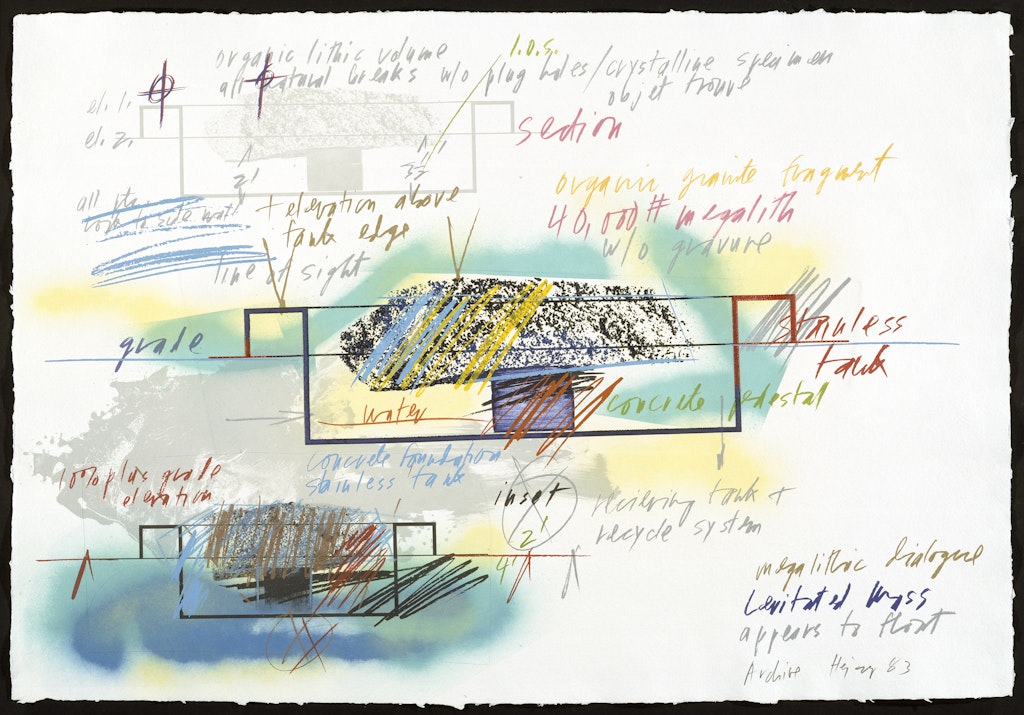 organic lithic volume
all natural breaks w/o plug holes/crystalline specimen
objet trouvé
l.o.s.
el. 1.
el. 2.
section
2'
3½'
all pts.
+ elevation above
tank edge
line of sight
organic granite fragment
40,000# megalith
w/o gravure
grade
stainless
tank
water
concrete pedestal
100% plus grade
elevation
concrete foundation
stainless tank
inset
2'
4'
recieving tank +
recycle system
megalithic dialogue
Levitated Mass
appears to float
Archive Heizer 83